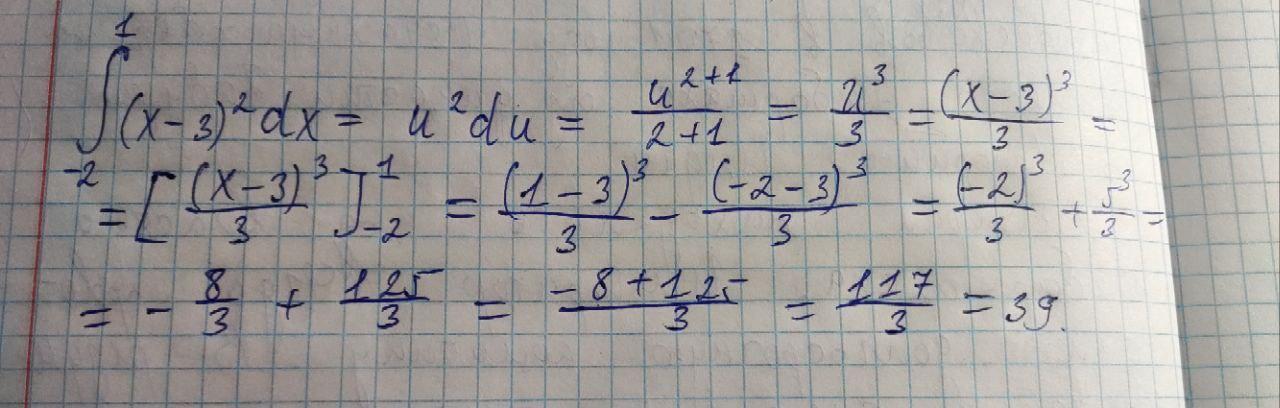 ∫₋₂¹ (x-3)² dx = u² du = u²⁺¹/2+1 = u³/3 = (x-3)³/3 =
= [(x-3)³/3]₋₂¹ = (1-3)³/3 - (-2-3)³/3 = (-2)³/3 + 5³/3 =
= - 8/3 + 125/3 = -8+125/3 = 117/3 = 39.